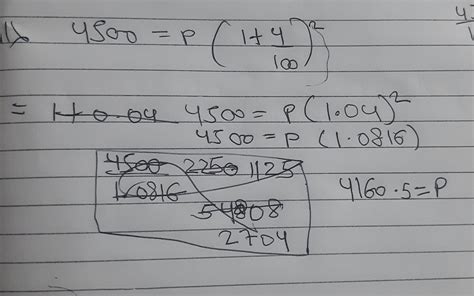 4500 = P (1+4/100)²
= 1+0.04 4500 = P(1.04)²
4500 = P (1.0816)
4500 2250 1125
1.0816
54808
2704
4160.5 = P